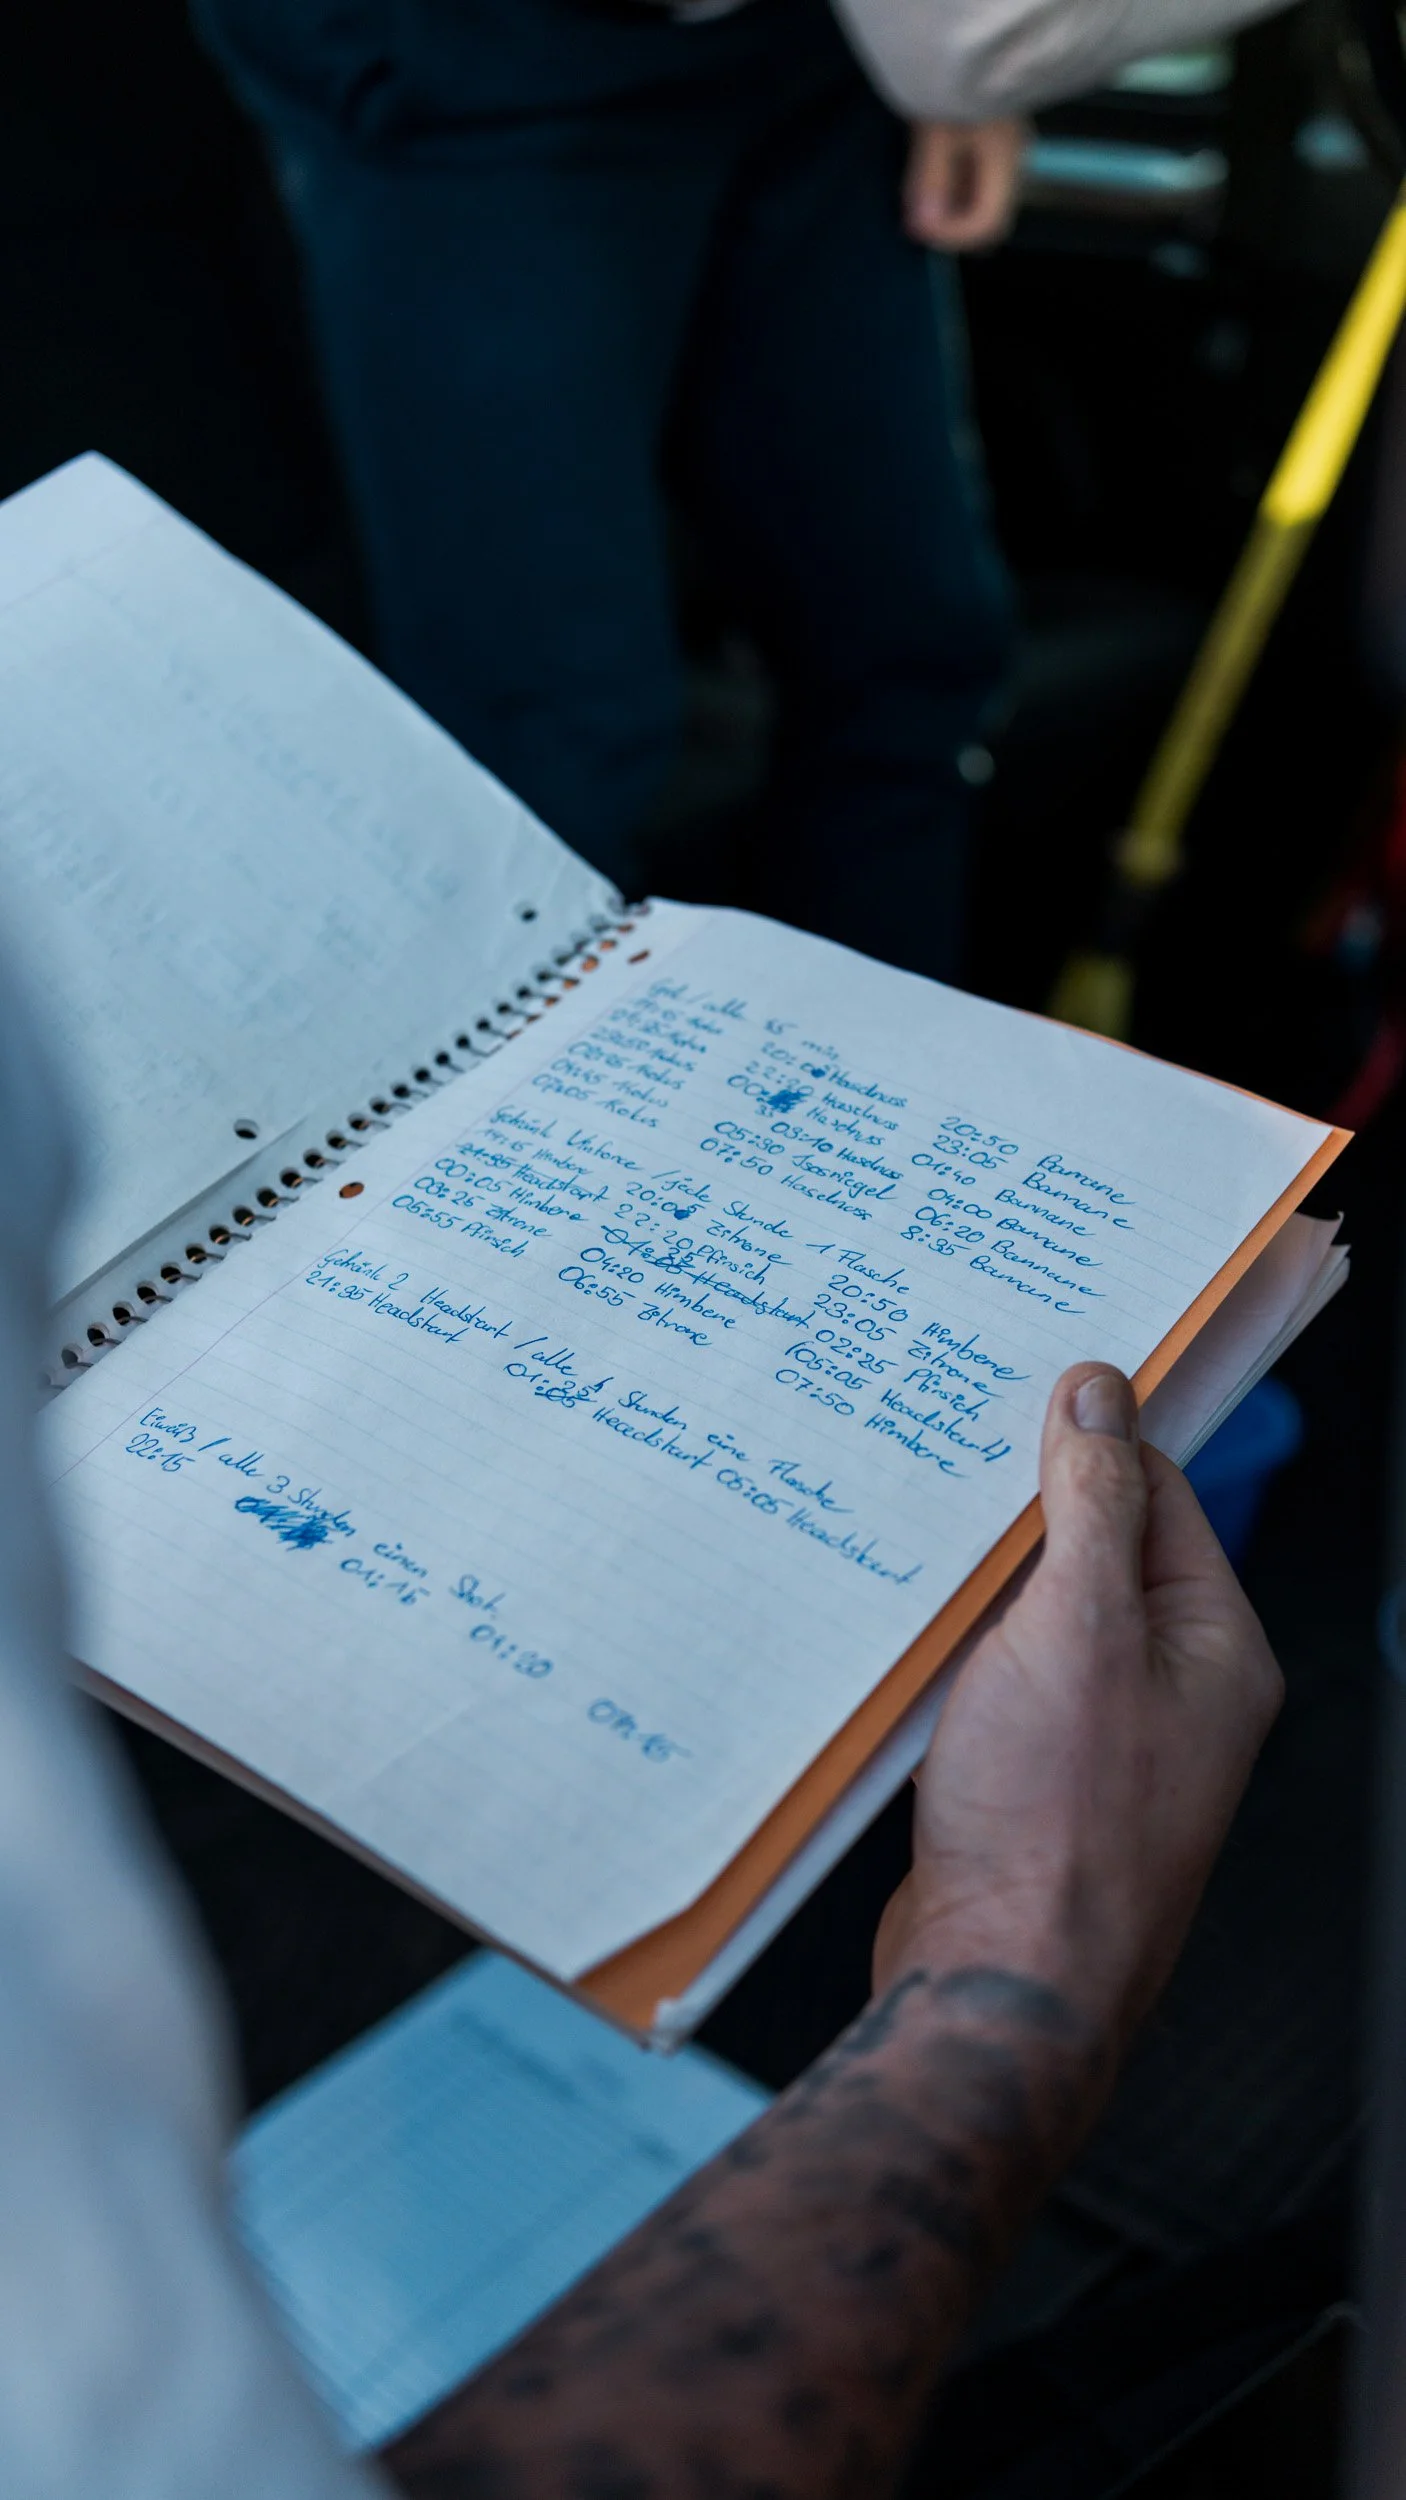 Gel / alle 45 min
19:15 Kokus 20:00 Haselnuss 20:50 Bannane
21:35 Kokus 22:20 Haselnuss 23:05 Bannane
23:50 Kokus 00:35 Haselnuss 01:40 Bannane
02:25 Kokus 03:10 Haselnuss 04:00 Bannane
04:45 Kokus 05:30 Isoriegel 06:20 Bannane
07:05 Kokus 07:50 Haselnuss 8:35 Bannane
Getränk / jede Stunde 1 Flasche
19:15 Himbere 20:05 Zitrone 20:50 Himbere
21:35 Headstart 22:20 Pfirsich 23:05 Zitrone
00:05 Himbere 01:35 Headstart 02:25 Pfirsich
03:25 Zitrone 04:20 Himbere (05:05 Headstart)
05:55 Pfirsich 06:55 Zitrone 07:50 Himbere
Getränk 2 Headstart / alle 4 Stunden eine Flasche
21:35 Headstart 01:35 Headstart 05:05 Headstart
Eiweiß / alle 3 Stunden einen Shot.
22:15 01:15 04:20 07:15